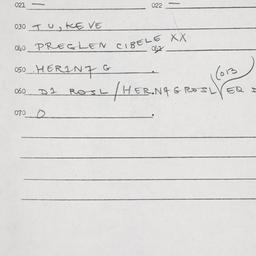 021 — 022 —
030 TU, KEVE
040 PREGLEN CIBELE XX
050 HERING G
060 D2 ROSL / HERING ROSL VER
070 O